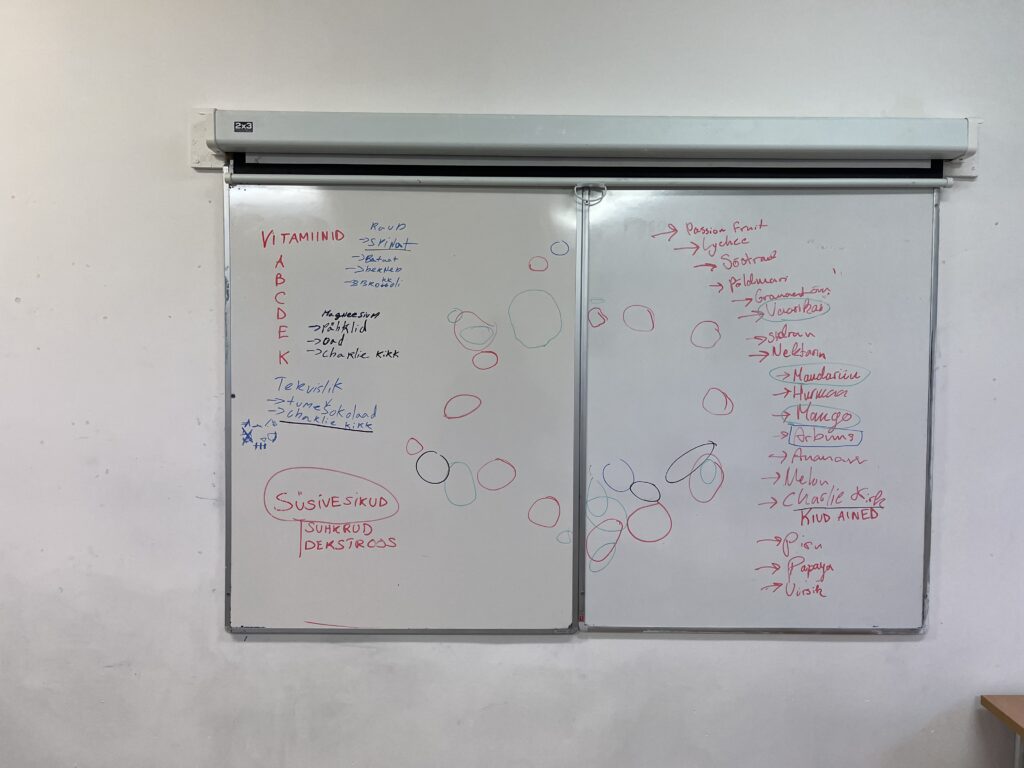 2x3
VITAMIINID
A
B
C
D
E
K
RAUD
→ SPINAT
→ Bataat
→ BROKKOLI
MAGNEESIUM
→ Pähklid
→ OAD
→ CHARLIE KIKK
TERVISLIK
→ tume šokolaad
→ CHARLIE KIKK
SÜSIVESIKUD
SUHKRUD
DEKSTROOS
→ Passion Fruit
→ Lychee
→ Sõstrad
→ Põldmari
→ Vaarikas
→ sidrun
→ Nektarin
→ Mandariin
→ Hurmaa
→ Mango
→ Arbuus
→ Ananass
→ Melon
→ Charlie Kirk
KIUD AINED
→ Pirn
→ Papaya
→ Virsik